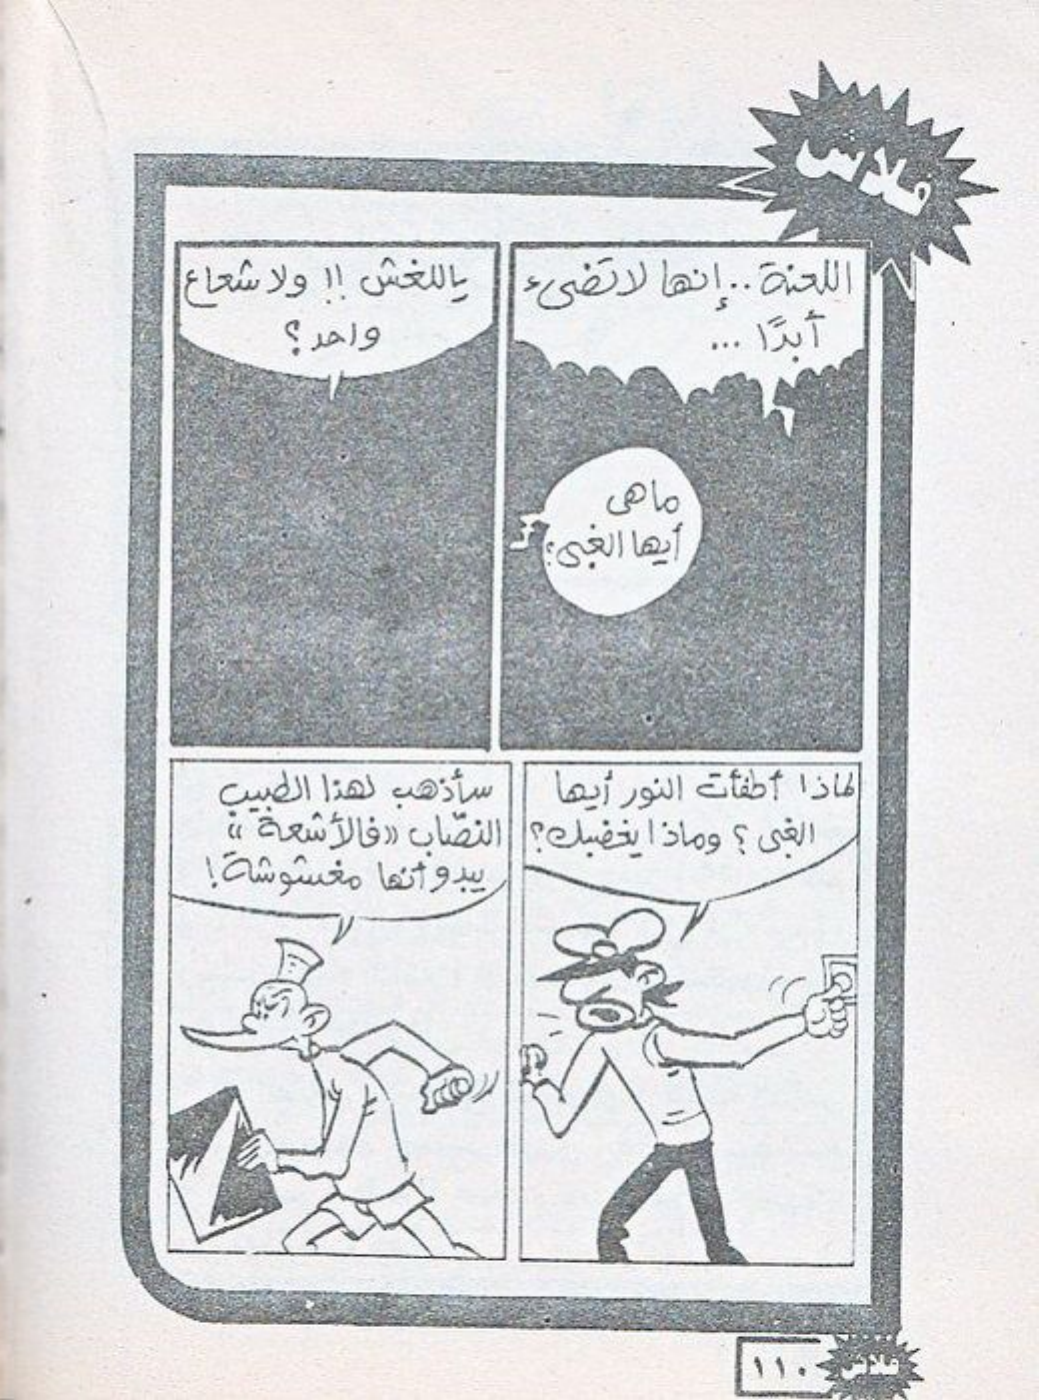 فلاش
اللعنة.. إنها لا تضىء
أبدًا ...
ما هى
أيها الغبى؟
ياللغش !! ولا شعاع
واحد؟
لماذا أطفأت النور أيها
الغبى؟ وماذا يغضبك؟
سأذهب لهذا الطبيب
النصّاب «فالأشعة»
يبدو أنها مغشوشة!
١١٠
فلاش